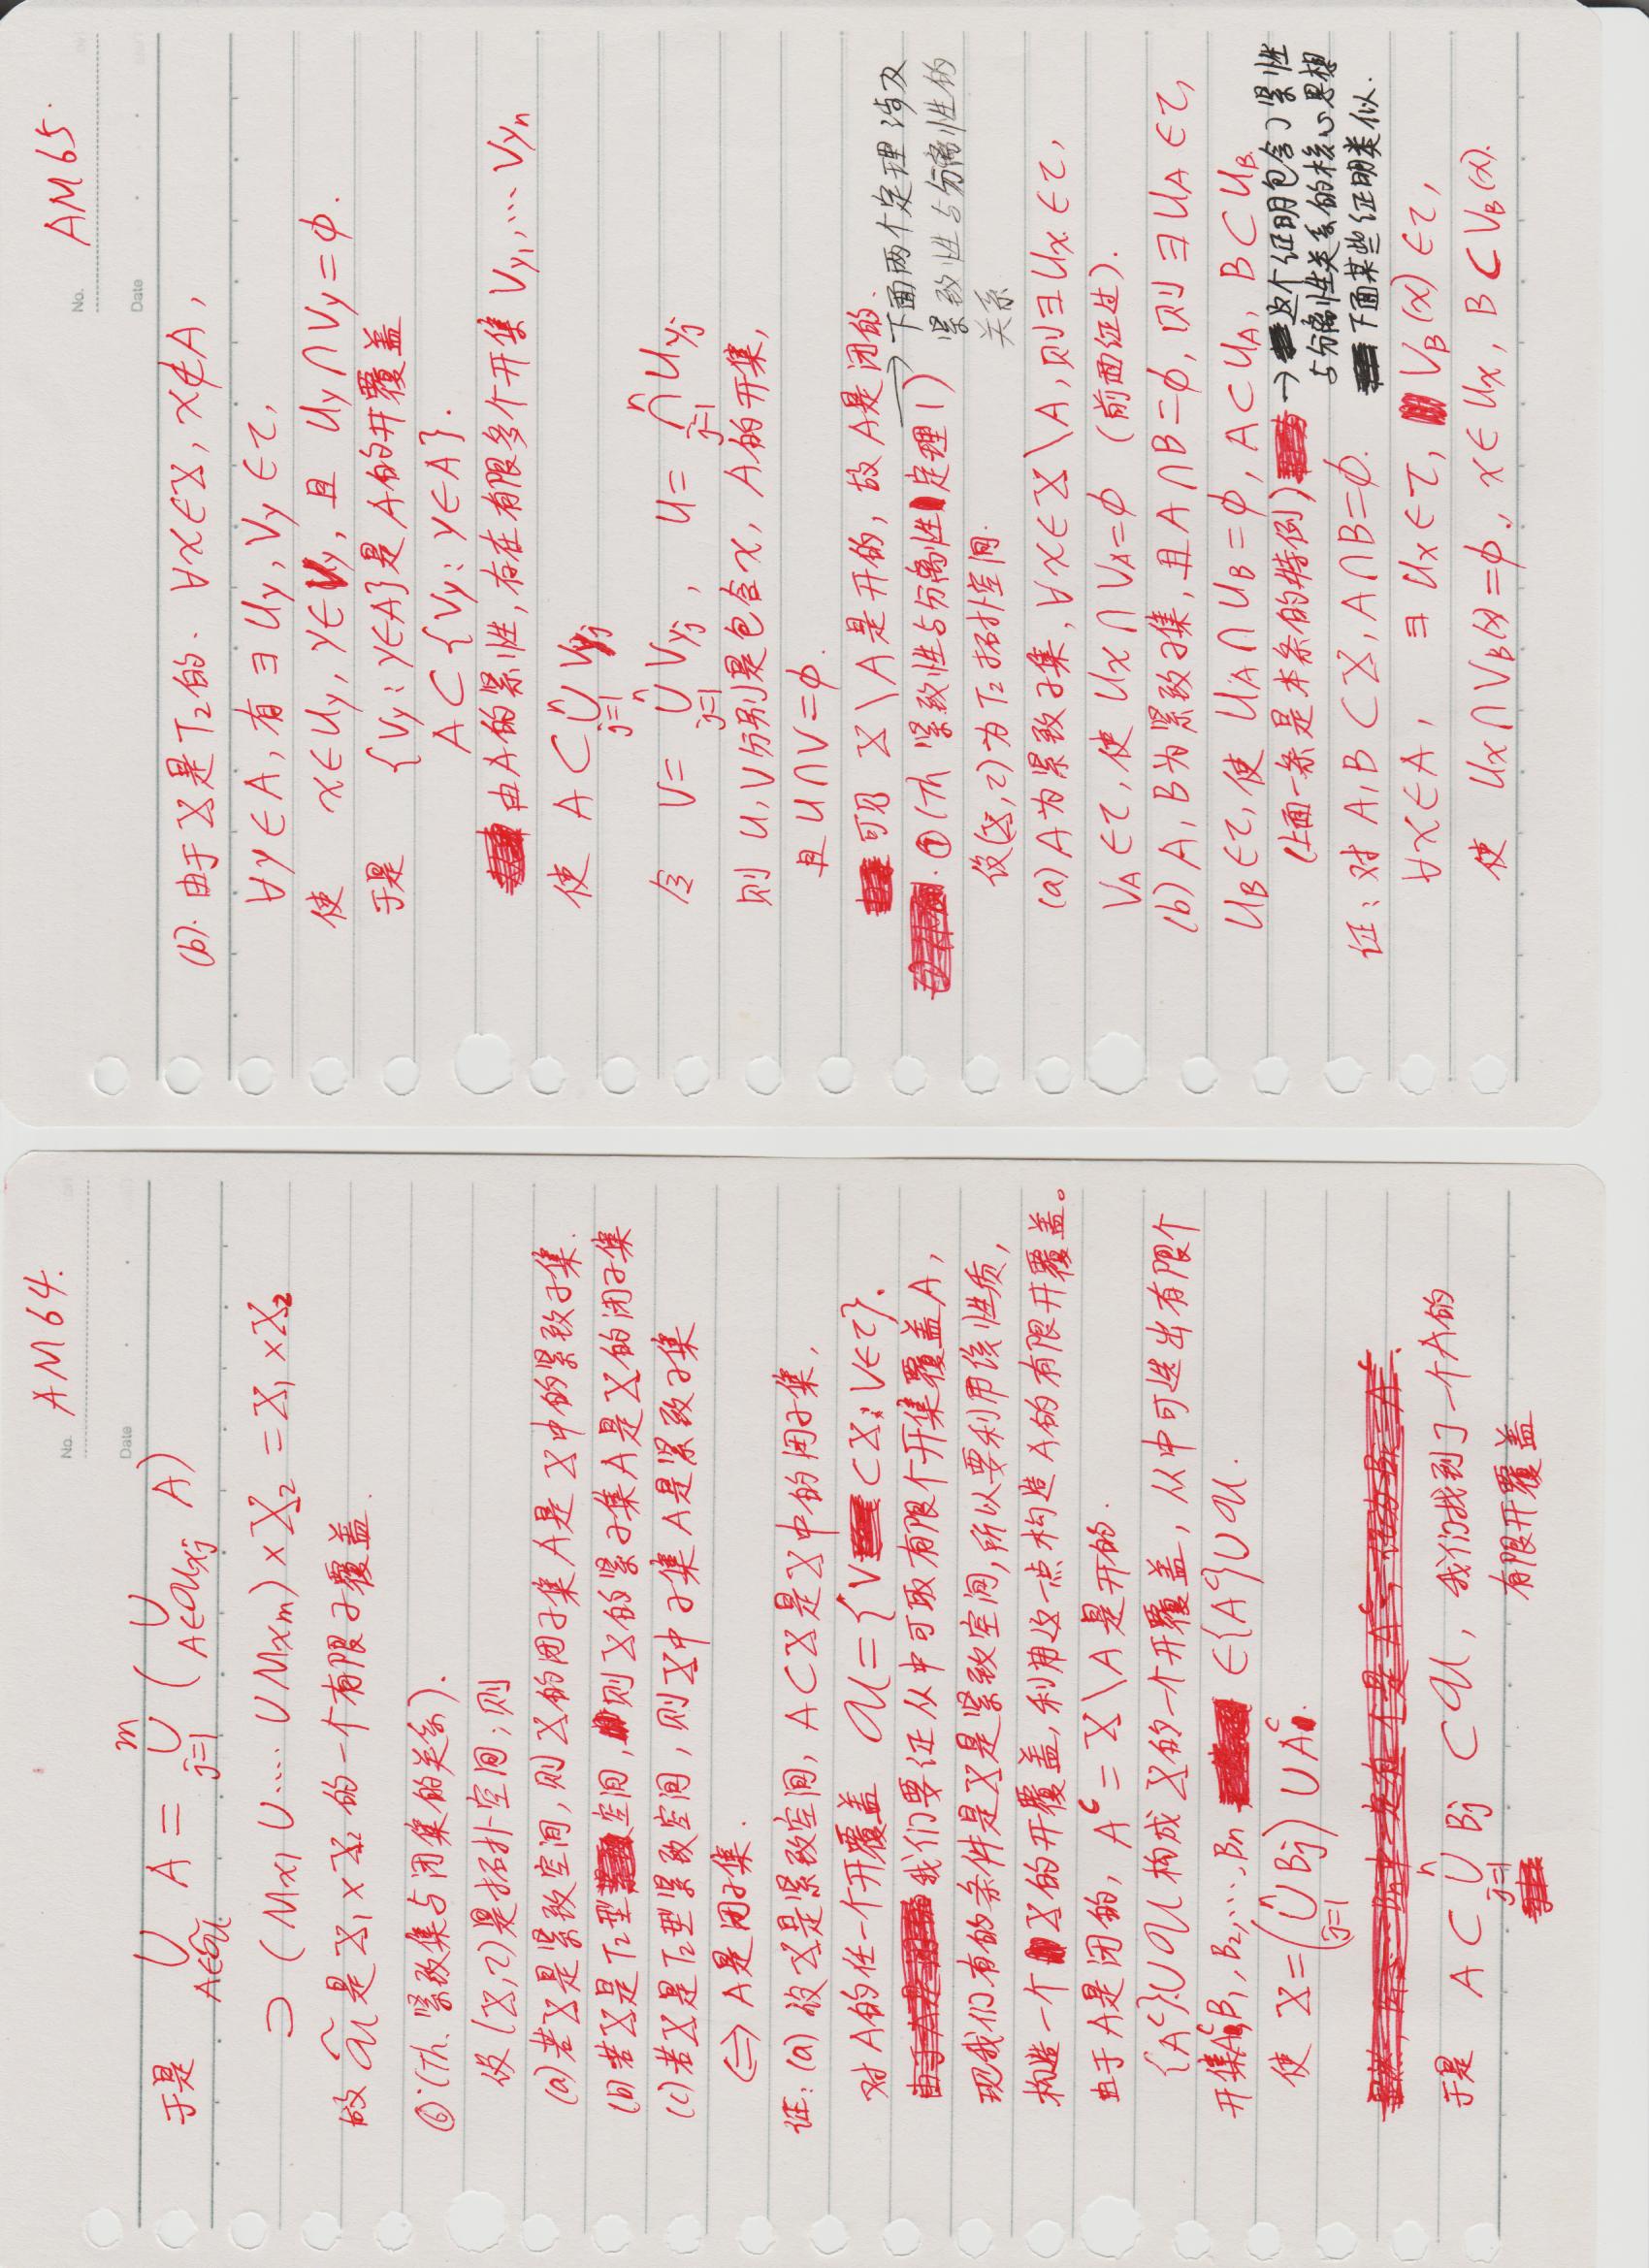 No. AM64.
Date
于是 ∪_{A∈𝒰̃} A = ∪_{j=1}^{m} ( ∪_{A∈𝒰_{xj}} A )
⊃ (M_{x1} ∪ ····· ∪ M_{xm}) × X₂ = X₁ × X₂
故 𝒰̃ 是 X₁ × X₂ 的一个有限子覆盖.
⑥ (Th. 紧致集与闭集的关系).
设 (X,τ) 是拓扑空间; 则
(a) 若X是紧致空间, 则X的闭子集A是X中的紧致子集.
(b) 若X是T₂型空间, 则X的紧子集A是X的闭子集
(c) 若X是T₂型紧致空间, 则X中子集A是紧致子集
⟺ A是闭子集.
证: (a) 设X是紧致空间, A⊂X是X中的闭子集,
对A的任一个开覆盖 𝒰={V ⊂X; V∈τ}.
我们要证从中可取有限个开集覆盖A,
现我们有的条件是X是紧致空间, 所以要利用该性质,
构造一个X的开覆盖, 利用这一点构造A的有限开覆盖。
由于A是闭的, Aᶜ = X\A 是开的.
{Aᶜ}∪𝒰 构成X的一个开覆盖, 从中可选出有限个
开集Aᶜ, B₁, B₂, ···, Bn ∈{Aᶜ}∪𝒰.
使 X=(∪_{j=1}^{n} Bj) ∪ Aᶜ.
于是 A ⊂ ∪_{j=1}^{n} Bj ⊂ 𝒰, 我们找到了一个A的
有限开覆盖
No. AM65.
Date
(b). 由于X是T₂的. ∀x∈X, x∉A,
∀y∈A, 有∃ Uy, Vy ∈τ,
使 x∈Uy, y∈Vy, 且 Uy∩Vy=ϕ.
于是 {Vy: y∈A}是A的开覆盖
A⊂{Vy: y∈A}.
由A的紧性, 存在有限多个开集 V_{y1}, ··· V_{yn}
使 A⊂∪_{j=1}^{n} V_{yj}
令 V= ∪_{j=1}^{n} V_{yj}, U= ∩_{j=1}^{n} U_{yj}
则 U, V分别是包含x, A的开集,
且 U∩V=ϕ.
可见 X\A是开的, 故A是闭的.
⑦ (Th 紧致性与分离性定理1)
→ 下面两个定理涉及
紧致性与分离性的
关系
设(X,τ)为T₂拓扑空间.
(a) A为紧致子集, ∀x∈X\A, 则∃Ux ∈τ,
V_A ∈τ, 使 Ux∩V_A=ϕ (前面证过).
(b) A, B为紧致子集, 且A∩B=ϕ, 则∃U_A∈τ,
U_B∈τ, 使 U_A∩U_B=ϕ, A⊂U_A, B⊂U_B.
(上面一条是本条的特例)
→ 这个证明包含了紧性
与分离性关系的核心思想
下面某些证明类似.
证: 对 A, B⊂X, A∩B=ϕ.
∀x∈A, ∃ Ux∈τ, V_B(x)∈τ,
使 Ux∩V_B(x)=ϕ, x∈Ux, B⊂V_B(x).